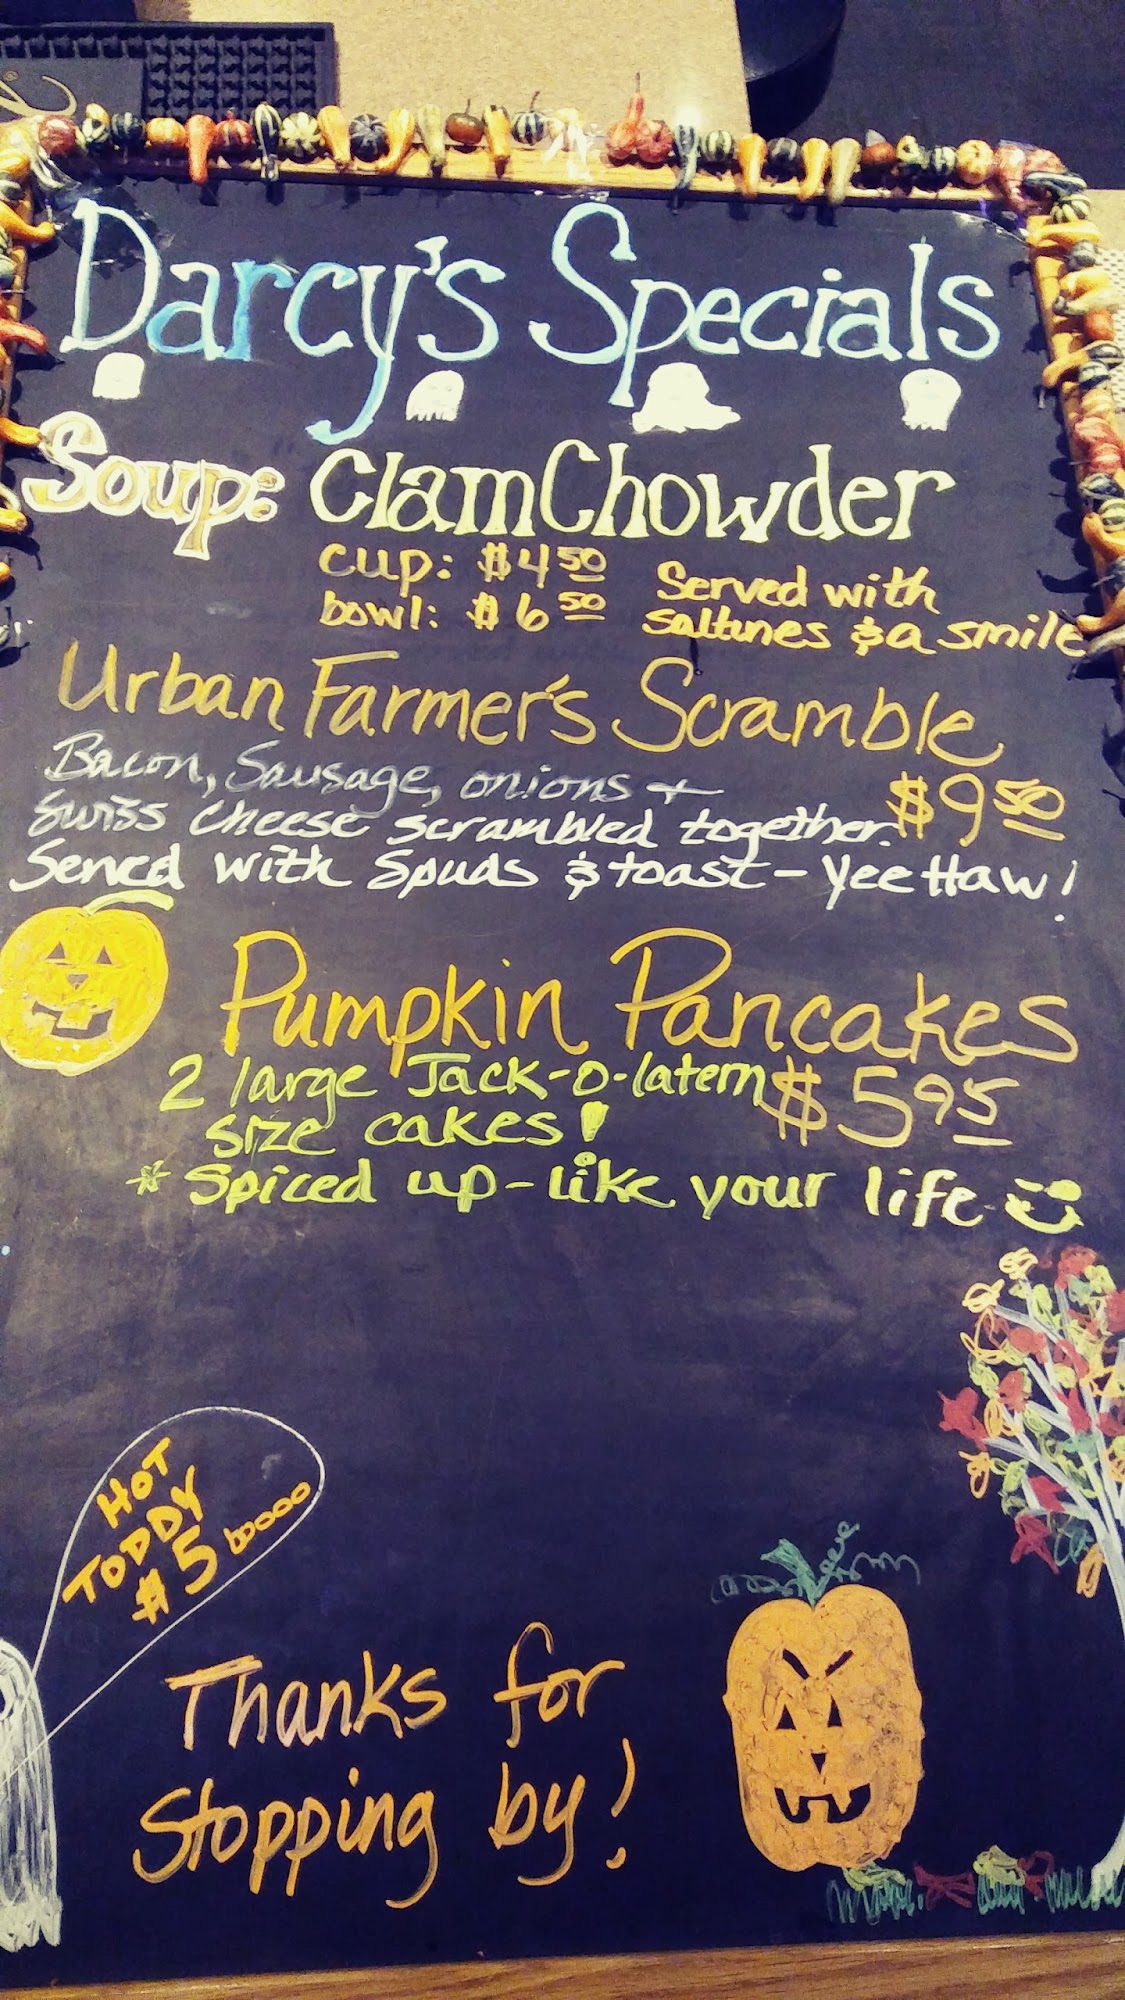 Darcy's Specials
Soup: Clam Chowder
cup: $4 50
bowl: $6 50
Served with
saltines & a smile
Urban Farmer's Scramble
Bacon, Sausage, onions +
Swiss cheese scrambled together.
$9 50
Served with Spuds & toast - Yee Haw!
Pumpkin Pancakes
2 large Jack-o-latern
$5 95
size cakes!
* Spiced up - Like your life
HOT
TODDY
$5 boooo
Thanks for
stopping by!